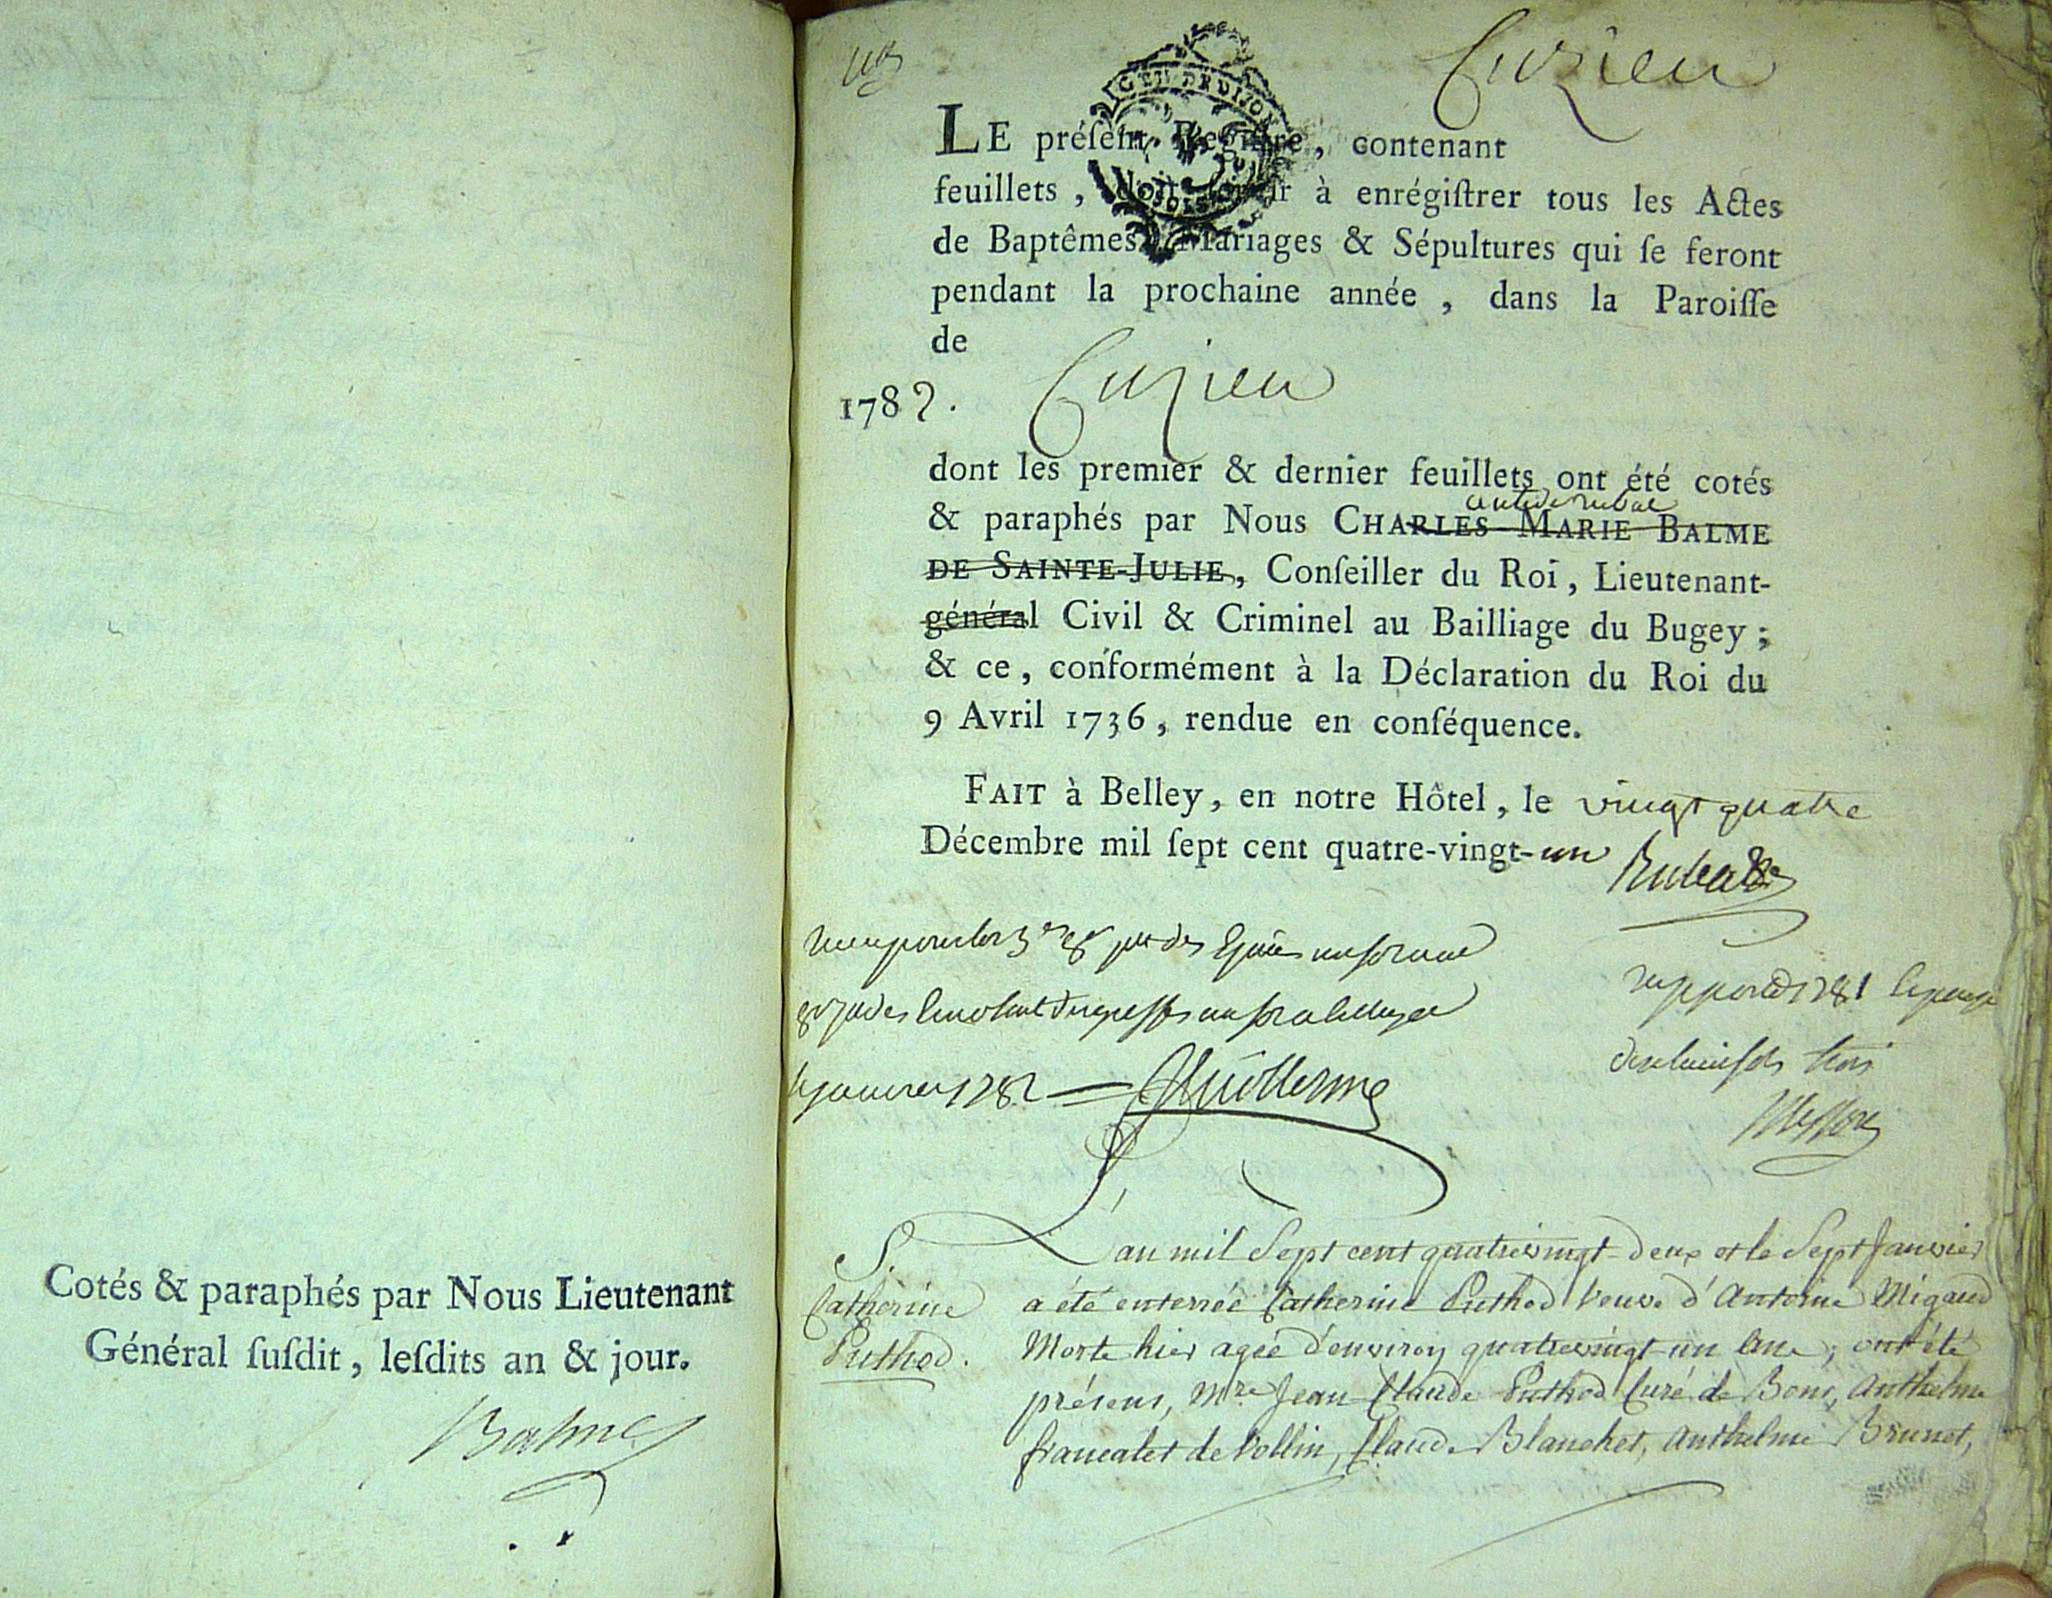 Cotés & paraphés par Nous Lieutenant
Général ſuſdit, leſdits an & jour.
Balme
Cuzieu
GEN DE DIJON
LE préſent Regiſtre, contenant
feuillets, doit ſervir à enrégiſtrer tous les Actes
de Baptêmes, Mariages & Sépultures qui ſe feront
pendant la prochaine année, dans la Paroiſſe
de
1782. Cuzieu
dont les premier & dernier feuillets ont été cotés
& paraphés par Nous CHARLES MARIE BALME
DE SAINTE-JULIE, Conſeiller du Roi, Lieutenant-
général Civil & Criminel au Bailliage du Bugey;
& ce, conformément à la Déclaration du Roi du
9 Avril 1736, rendue en conſéquence.
FAIT à Belley, en notre Hôtel, le vingt quatre
Décembre mil ſept cent quatre-vingt-un
Rubat
janvier 1782 = Guillerme
trois
S.
Catherine
Puthod.
L'an mil Sept cent quatrevingt-deux et le Sept Janvier
a été enterrée Catherine Puthod Veuve d'Antoine Migaud
Morte hier agée d'environ quatrevingt-un ans; ont été
présens, Mre. Jean Claude Puthod Curé de Bons, Anthelme
francalet de Vollin, Claude Blanchet, Anthelme Brunet,